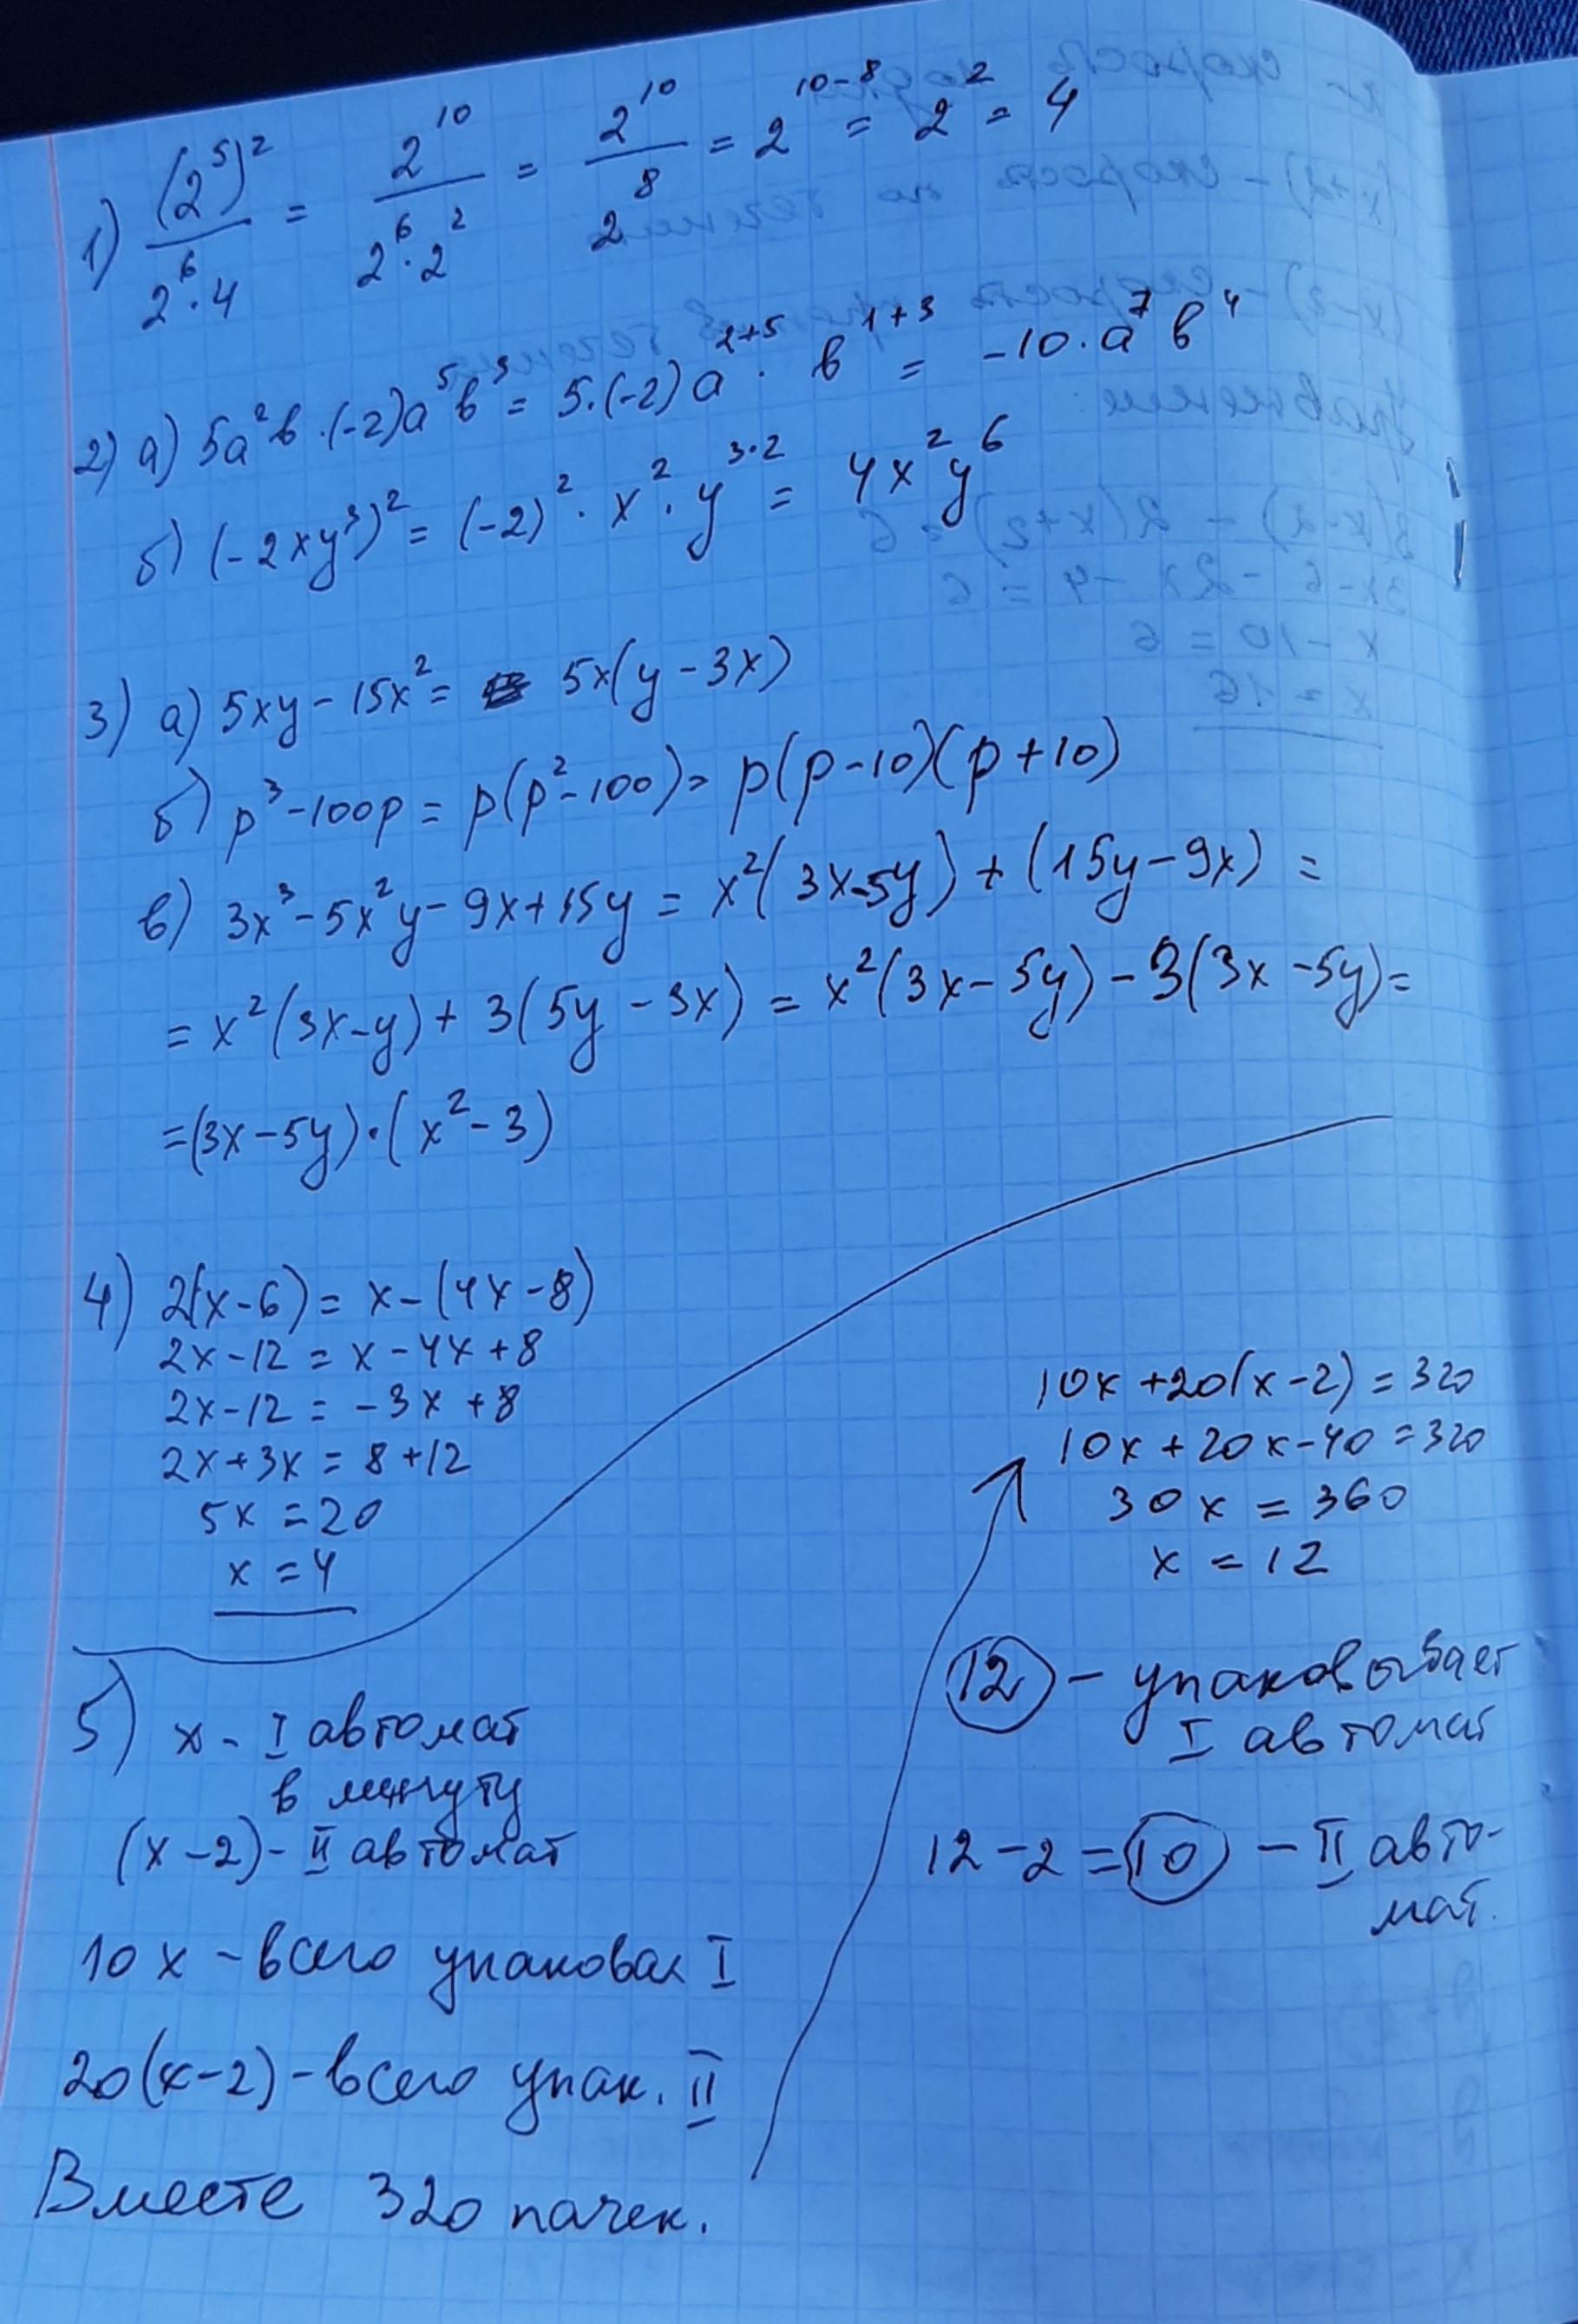 1) (2⁵)²/(2⁶·4) = 2¹⁰/(2⁶·2²) = 2¹⁰/2⁸ = 2¹⁰⁻⁸ = 2² = 4
2) а) 5a²b·(-2)a⁵b³ = 5·(-2)a²⁺⁵·b¹⁺³ = -10·a⁷b⁴
б) (-2xy³)² = (-2)²·x²·y³·² = 4x²y⁶
3) а) 5xy - 15x² = 5x(y - 3x)
б) p³ - 100p = p(p² - 100) = p(p - 10)(p + 10)
в) 3x³ - 5x²y - 9x + 15y = x²(3x - 5y) + (15y - 9x) =
= x²(3x - y) + 3(5y - 3x) = x²(3x - 5y) - 3(3x - 5y) =
= (3x - 5y)·(x² - 3)
4) 2(x - 6) = x - (4x - 8)
2x - 12 = x - 4x + 8
2x - 12 = -3x + 8
2x + 3x = 8 + 12
5x = 20
x = 4
5) x - I автомат
в минуту
(x - 2) - II автомат
10x - всего упаковал I
20(x - 2) - всего упак. II
Вместе 320 пачек.
10x + 20(x - 2) = 320
10x + 20x - 40 = 320
30x = 360
x = 12
12 - упаковывает
I автомат
12 - 2 = 10 - II авто-
мат.